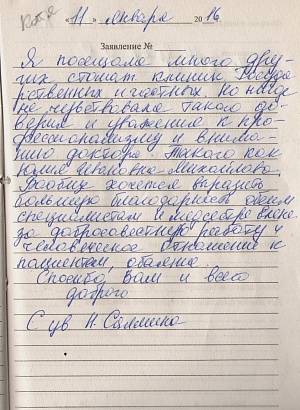 «11» января 2016 г.
Заявление №
Я посещала много дру-
гих стомат клиник Госуда
рственных и частных. Но нигде
не чувствовала такого до-
верия и уважения к про-
фессионализму и внима-
нию доктора. Такого как
Юлия Ивановна Михайлова.
Вообще хочется выразить
большую благодарность
специалистам и медсестре
за добросовестную работу и
человеческое отношение к
пациентам, обаяние.
Спасибо Вам и всего
доброго
С ув Н. Салмина